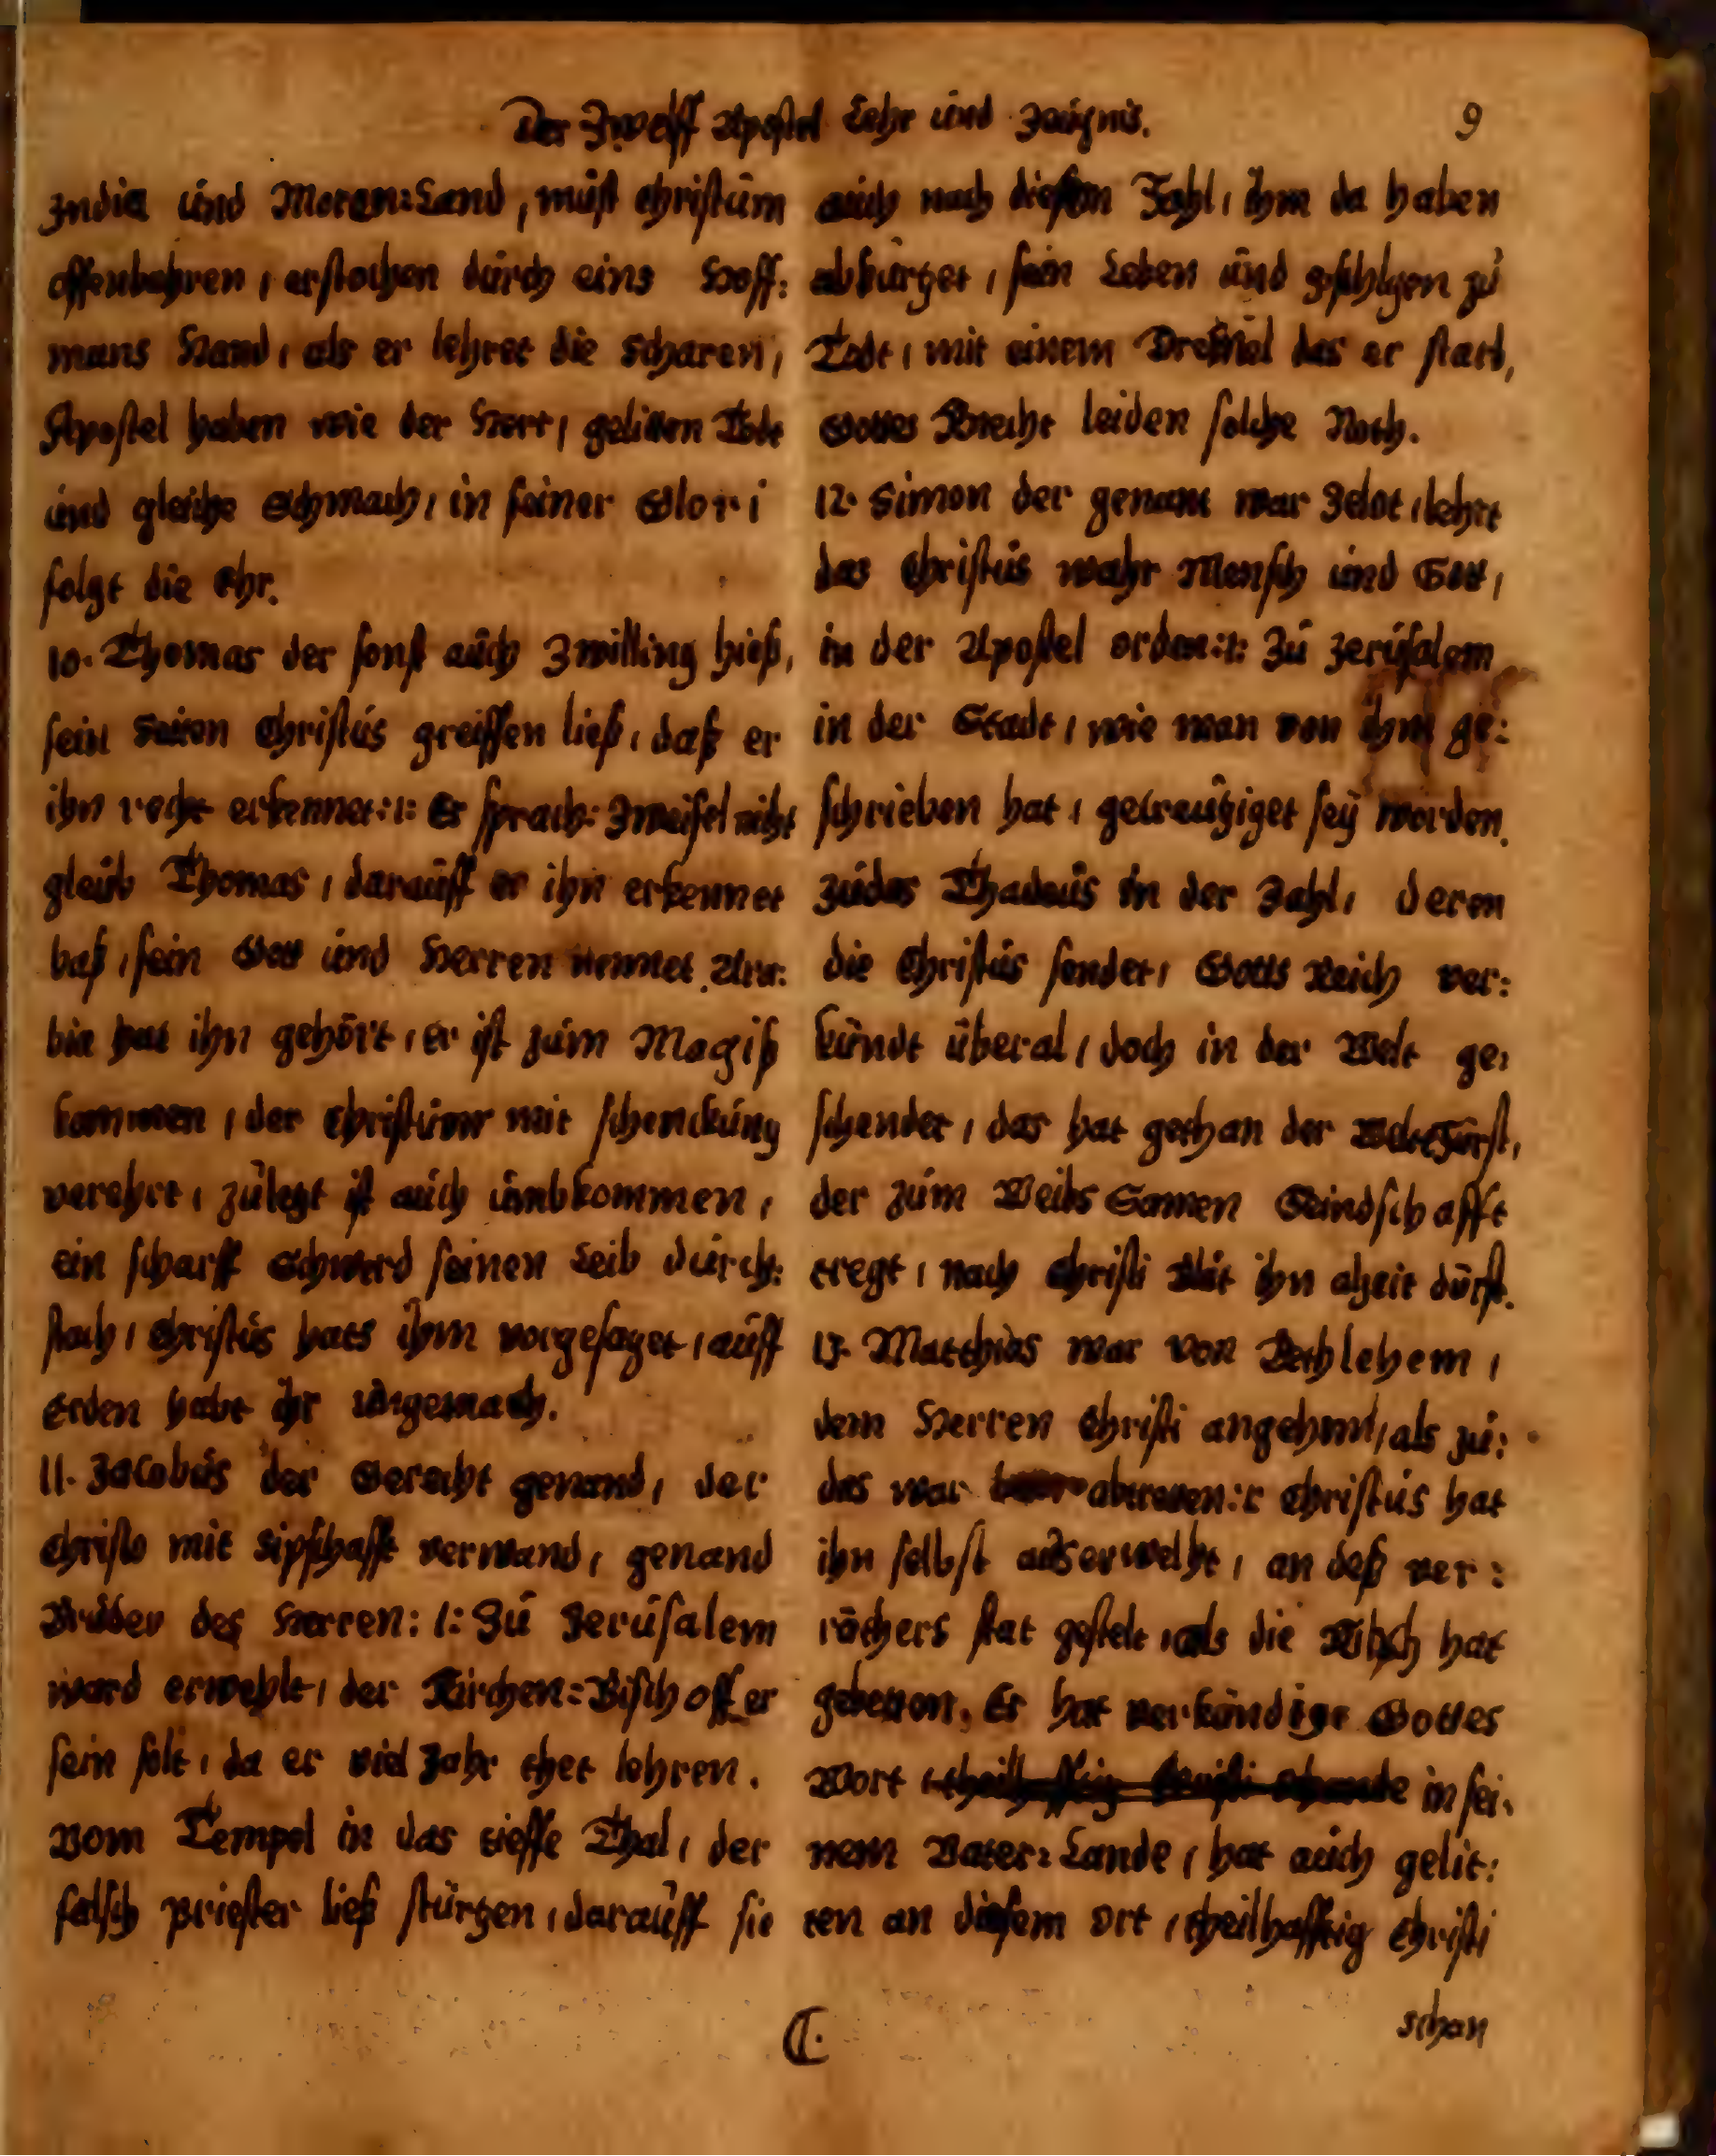 Der Zwelff Apostel Lehr und Zeugnis.
9
India und Moren=Land, must Christum
offenbahren, erstochen durch eins Hoff=
mans Hand, als er lehret die Scharen,
Apostel haben wie der Herr, gelitten Todt
und gleiche Schmach, in seiner Glori
folgt die Ehr.
10. Thomas der sonst auch Zwilling hieß,
sein Seiten Christus greiffen ließ, daß er
ihn recht erkennet:/: Er sprach: Zweifel nicht
gleub Thomas, darauff er ihn erkennet
baß, sein Gott und Herren nennet. Ara=
bia hat ihn gehört, er ist zum Magiß
kommen, der Christum mit schenckung
verehrt, zuletzt ist auch umbkommen,
ein scharff Schwerd seinen Leib durch=
stach, Christus hats ihm vorgesaget, auff
Erden habt ihr ungemach.
11. Jacobus der Gerecht genand, der
Christo mit Sipschafft verwand, genand
Bruder des Herren:/: Zu Jerusalem
ward erwehlt, der Kirchen=Bischoff er
sein solt, da er viel Jahr thet lehren.
Vom Tempel in das tieffe Thal, der
falsch Priester ließ stürtzen, darauff sie
auch nach diesem Fahl, ihm da haben
abkürtzet, sein Leben und geschlgen zu
Todt, mit einem das er starb,
Gottes Knecht leiden solche Noth.
12. Simon der genant war Zelot, lehrt
das Christus wahr Mensch und Gott,
in der Apostel orden:/: Zu Jerusalem
in der Stadt, wie man von ihm ge=
schrieben hat, gecreutziget sey worden.
Judas Thadeus in der Zahl, deren
die Christus sendet, Gotts Reich ver=
kündt überal, doch in der Welt ge=
schendet, das hat gethan der Weltfürst,
der zum Weibs Samen Feindschafft
tregt, nach Christi Blut ihn alzeit dürst.
13. Matthias war von Bethlehem,
dem Herren Christi angehem, als Ju=
das war abtreten:/: Christus hat
ihn selbst auserwelht, an deß ver=
räthers stat gestelt, als die Kirch hat
gebetten. Er hat verkündigt Gottes
Wort, theilhafftig Christi schande in sei=
nem Vater=Lande, hat auch gelit=
ten an diesem ort, theilhafftig Christi
C.
schan